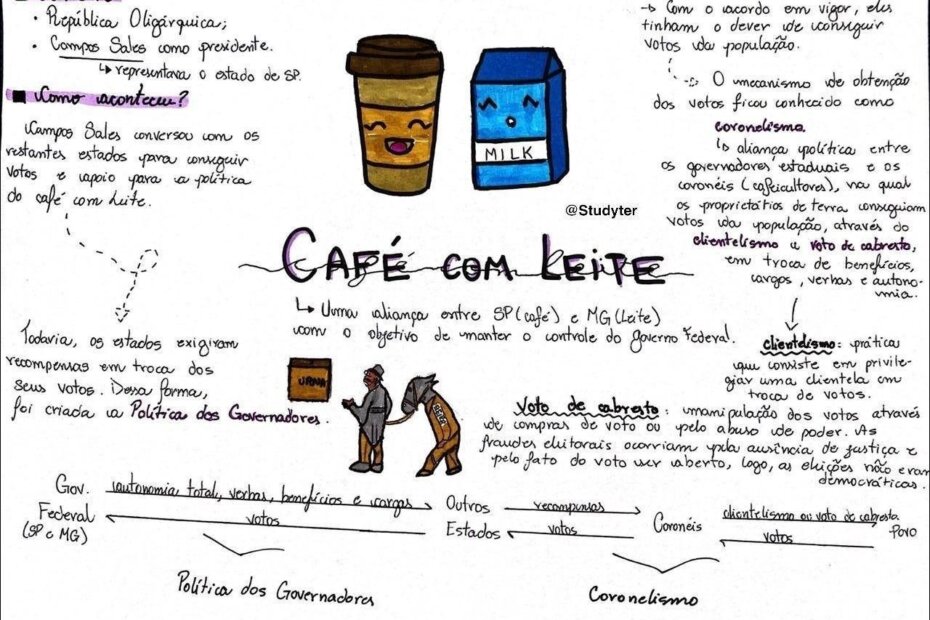 • República Oligárquica;
• Campos Sales como presidente.
↳ representava o estado de SP.
■ Como aconteceu?
Campos Sales conversou com os
restantes estados para conseguir
votos e apoio para a política
do café com Leite.
Todavia, os estados exigiram
recompensas em troca dos
seus votos. Dessa forma,
foi criada a Política dos Governadores.
MILK
@Studyter
CAFÉ COM LEITE
↳ Uma aliança entre SP(café) e MG(Leite)
com o objetivo de manter o controle do governo Federal.
URNA
→ Com o acordo em vigor, eles
tinham o dever de conseguir
votos da população.
O mecanismo de obtenção
dos votos ficou conhecido como
coronelismo.
↳ aliança política entre
os governadores estaduais e os
coronéis (cafeicultores), na qual
os proprietários de terra conseguiam
votos da população, através do
clientelismo e voto de cabresto,
em troca de benefícios,
cargos, verbas e autono-
mia.
clientelismo: prática
que consiste em privile-
giar uma clientela em
troca de votos.
Voto de cabresto: manipulação dos votos através
de compras de voto ou pelo abuso de poder. As
fraudes eleitorais ocorriam pela ausência de justiça e
pelo fato do voto ser aberto, logo, as eleições não eram
democráticas.
Gov. Federal (SP e MG)
autonomia total, verbas, benefícios e cargos
votos
Outros Estados
recompensas
votos
Coronéis
clientelismo ou voto de cabresto
votos
Povo
Política dos Governadores
Coronelismo